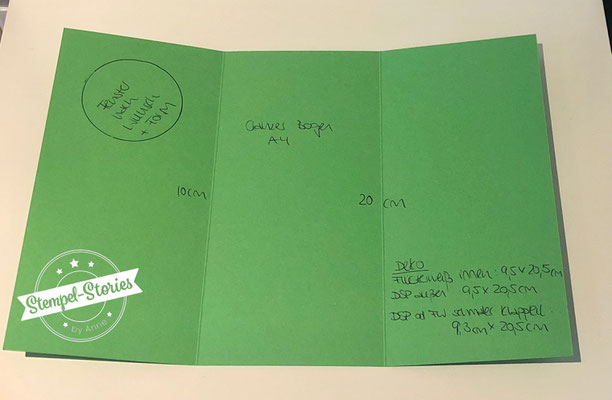 Fenster
nach
Wunsch
+ Form
Ganzes Bogen
A4
10cm
20 cm
Deko
Flüsterweiß innen: 9,5 x 20,5cm
DSP außen 9,5 x 20,5cm
DSP od FW schmaler Klappteil:
9,3cm x 20,5cm
Stempel-Stories
by Anne